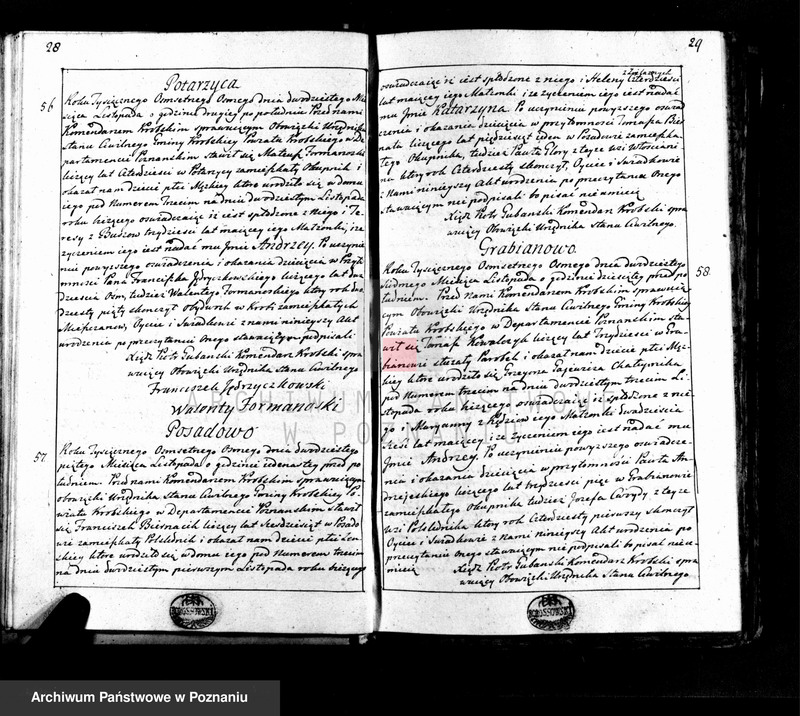 28
Potarzyca
56
Roku Tysięcznego Osmsetnego Osmego dnia dwudziestego Mie
siąca Listopada o godzinie drugiey po południu Przed nami
Komendarzem Krobskim sprawuiącym Obowiązki Urzędnika
Stanu Cywilnego Gminy Krobskiey Powiatu Krobskiego w De
partamencie Poznanskim stawił się Mateusz Formanoski
liczący lat Czterdziesci w Potarzycy zamieszkały Okupnik i
okazał nam dziecie płci Męzkiey które urodziło się w domu
iego pod Numerem Trzecim na dniu dwudziestym Listopada
roku bieżącego oswiadczaiąc iż iest spłodzone z niego i Te
resy z Buszow trzydziesci lat maiącey iego Małzonki, i ze
zyczeniem iego iest nadać mu Jmie Andrzey. Po uczynie
niu powyzszego oswiadczenia i okazania dziecięcia w Przyto
mnosci Pana Franciszka Jędryczkowskiego liczącego lat dwa
dziescia Osm, tudzież Walentego Formanoskiego który rok dwu
dziesty piąty skonczył obydwuch w Krobi zamieszkałych
Mieszczanow, Oyciec i Swiadkowie z nami ninieyszy Akt
urodzenia po przeczytaniu Onego stawaiącym podpisali
Xiądz Piotr Łubanski Komendarz Krobski spra
wuiący Obowiązki Urzędnika Stanu Cywilnego
Franciszek Jędryczkowski
Walenty Formanoski
Posadowo
57
Roku Tysięcznego Osmsetnego Osmego dnia dwudziestego
piątego Miesiąca Listopada o godzinie iedenastey przed po
łudniem. Przed nami Komendarzem Krobskim sprawuiącym
obowiązki Urzędnika Stanu Cywilnego Gminy Krobskiey Po
wiatu Krobskiego w Departamencie Poznanskim stawił
się Franciszek Biernacik liczący lat Szesdziesiąt w Posado
wie zamieszkały Pułślednik i okazał nam dziecie płci Żen
skiey które urodziło się w domu iego pod Numerem trzecim
na dniu dwudziestym pierwszym Listopada roku bieżącego
29
oswiadczaiąc iż iest spłodzone z niego i Heleny Czterdziesci
lat maiącey iego Małzonki i ze zyczeniem iego iest nadać
mu Jmie Katarzyna. Po uczynieniu powyzszego oswiad
czenia i okazania dziecięcia w przytomnosci Tomasza
liczącego lat pięćdziesiąt ieden w Posadowie zamieszka
łego Okupnika, tudzież Pawła Flory z teyże wsi Włoscian
na który rok Czterdziesty skonczył, Oyciec i Swiadkowie
z Nami ninieyszy Akt urodzenia po przeczytaniu Onego
stawaiącym nie podpisali bo pisać nie umieią
Xiądz Piotr Łubanski Komendarz Krobski spra
wuiący Obowiązki Urzędnika Stanu Cywilnego.
Grabianowo
58
Roku Tysięcznego Osmsetnego Osmego dnia dwudziestego
siódmego Miesiąca Listopada o godzinie dziesiątey przed po
łudniem. Przed nami Komendarzem Krobskim sprawuią
cym Obowiązki Urzędnika Stanu Cywilnego Gminy Krobskiey
Powiatu Krobskiego w Departamencie Poznanskim sta
wił się Tomasz Kowalczyk liczący lat Trzydziesci w Gra
bianowie służały Parobek i okazał nam dziecie płci Męz
kiey które urodziło się Grzegorza Chałupnika
pod Numerem trzecim na dniu dwudziestym trzecim Li
stopada roku bieżącego oswiadczaiąc iż spłodzone z nie
go i Maryanny z iego Małzonki Dwadziescia
szesć lat maiącey i ze zyczeniem iego iest nadać mu
Jmie Andrzey. Po uczynieniu powyzszego oswiadcze
nia i okazania dziecięcia w przytomnosci Pawła An
drzejeskiego liczącego lat trzydziesci pięć w Grabianowie
zamieszkałego Okupnika tudzież Jozefa z teyze
wsi Pułślednika który rok Czterdziesty pierwszy skonczył
Oyciec i Swiadkowie z Nami ninieyszy Akt urodzenia po
przeczytaniu Onego stawaiącym nie podpisali bo pisać nieu
mieią
Xiądz Piotr Łubanski Komendarz Krobski spra
wuiący Obowiązki Urzędnika Stanu Cywilnego
BOROSSOWSKI
BOROSSOWSKI
ARCHIWUM PAŃSTWOWE
W POZNANIU
Archiwum Państwowe w Poznaniu